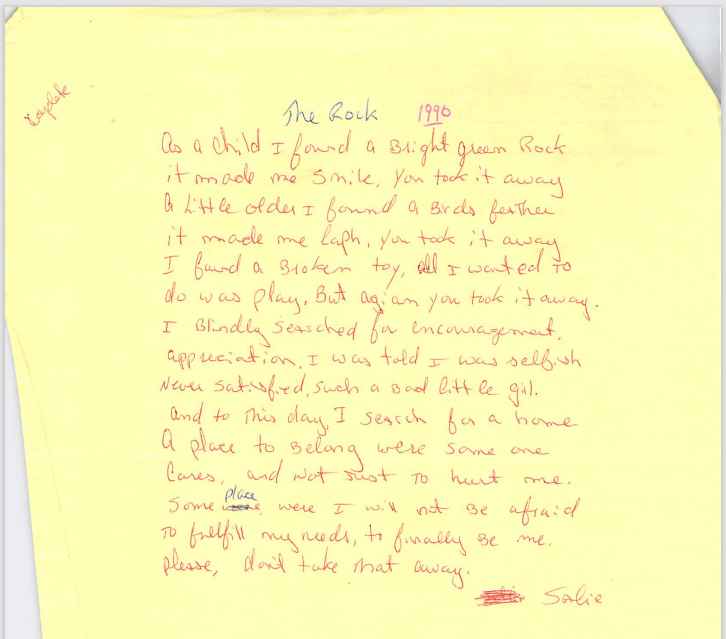 The Rock 1990
As a child I found a Bright green Rock
it made me Smile, you took it away
A little older I found a Birds feather
it made me laph, you took it away
I found a Broken toy, all I wanted To
do was play, But agian you took it away.
I Blindly searched for encouragement,
appreciation, I was told I was selfish
Never satisfied, such a Bad little girl.
And to This day, I search for a home
A place to Belong were some one
Cares, and Not Just To hurt me.
Some place were I will not Be afraid
To fullfill my needs, to finally Be me.
please, don't take that away.